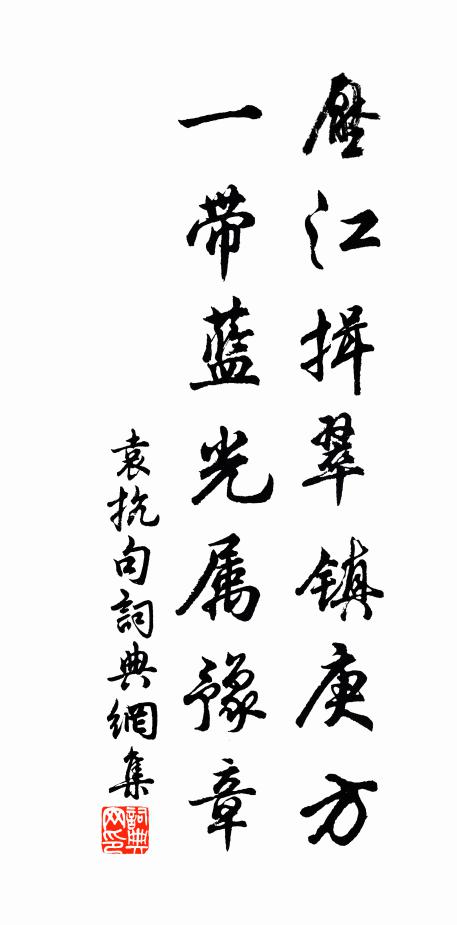 壓江揖翠镇庚方
一带藍光属豫章
袁抗句詞典網集
詞典网印